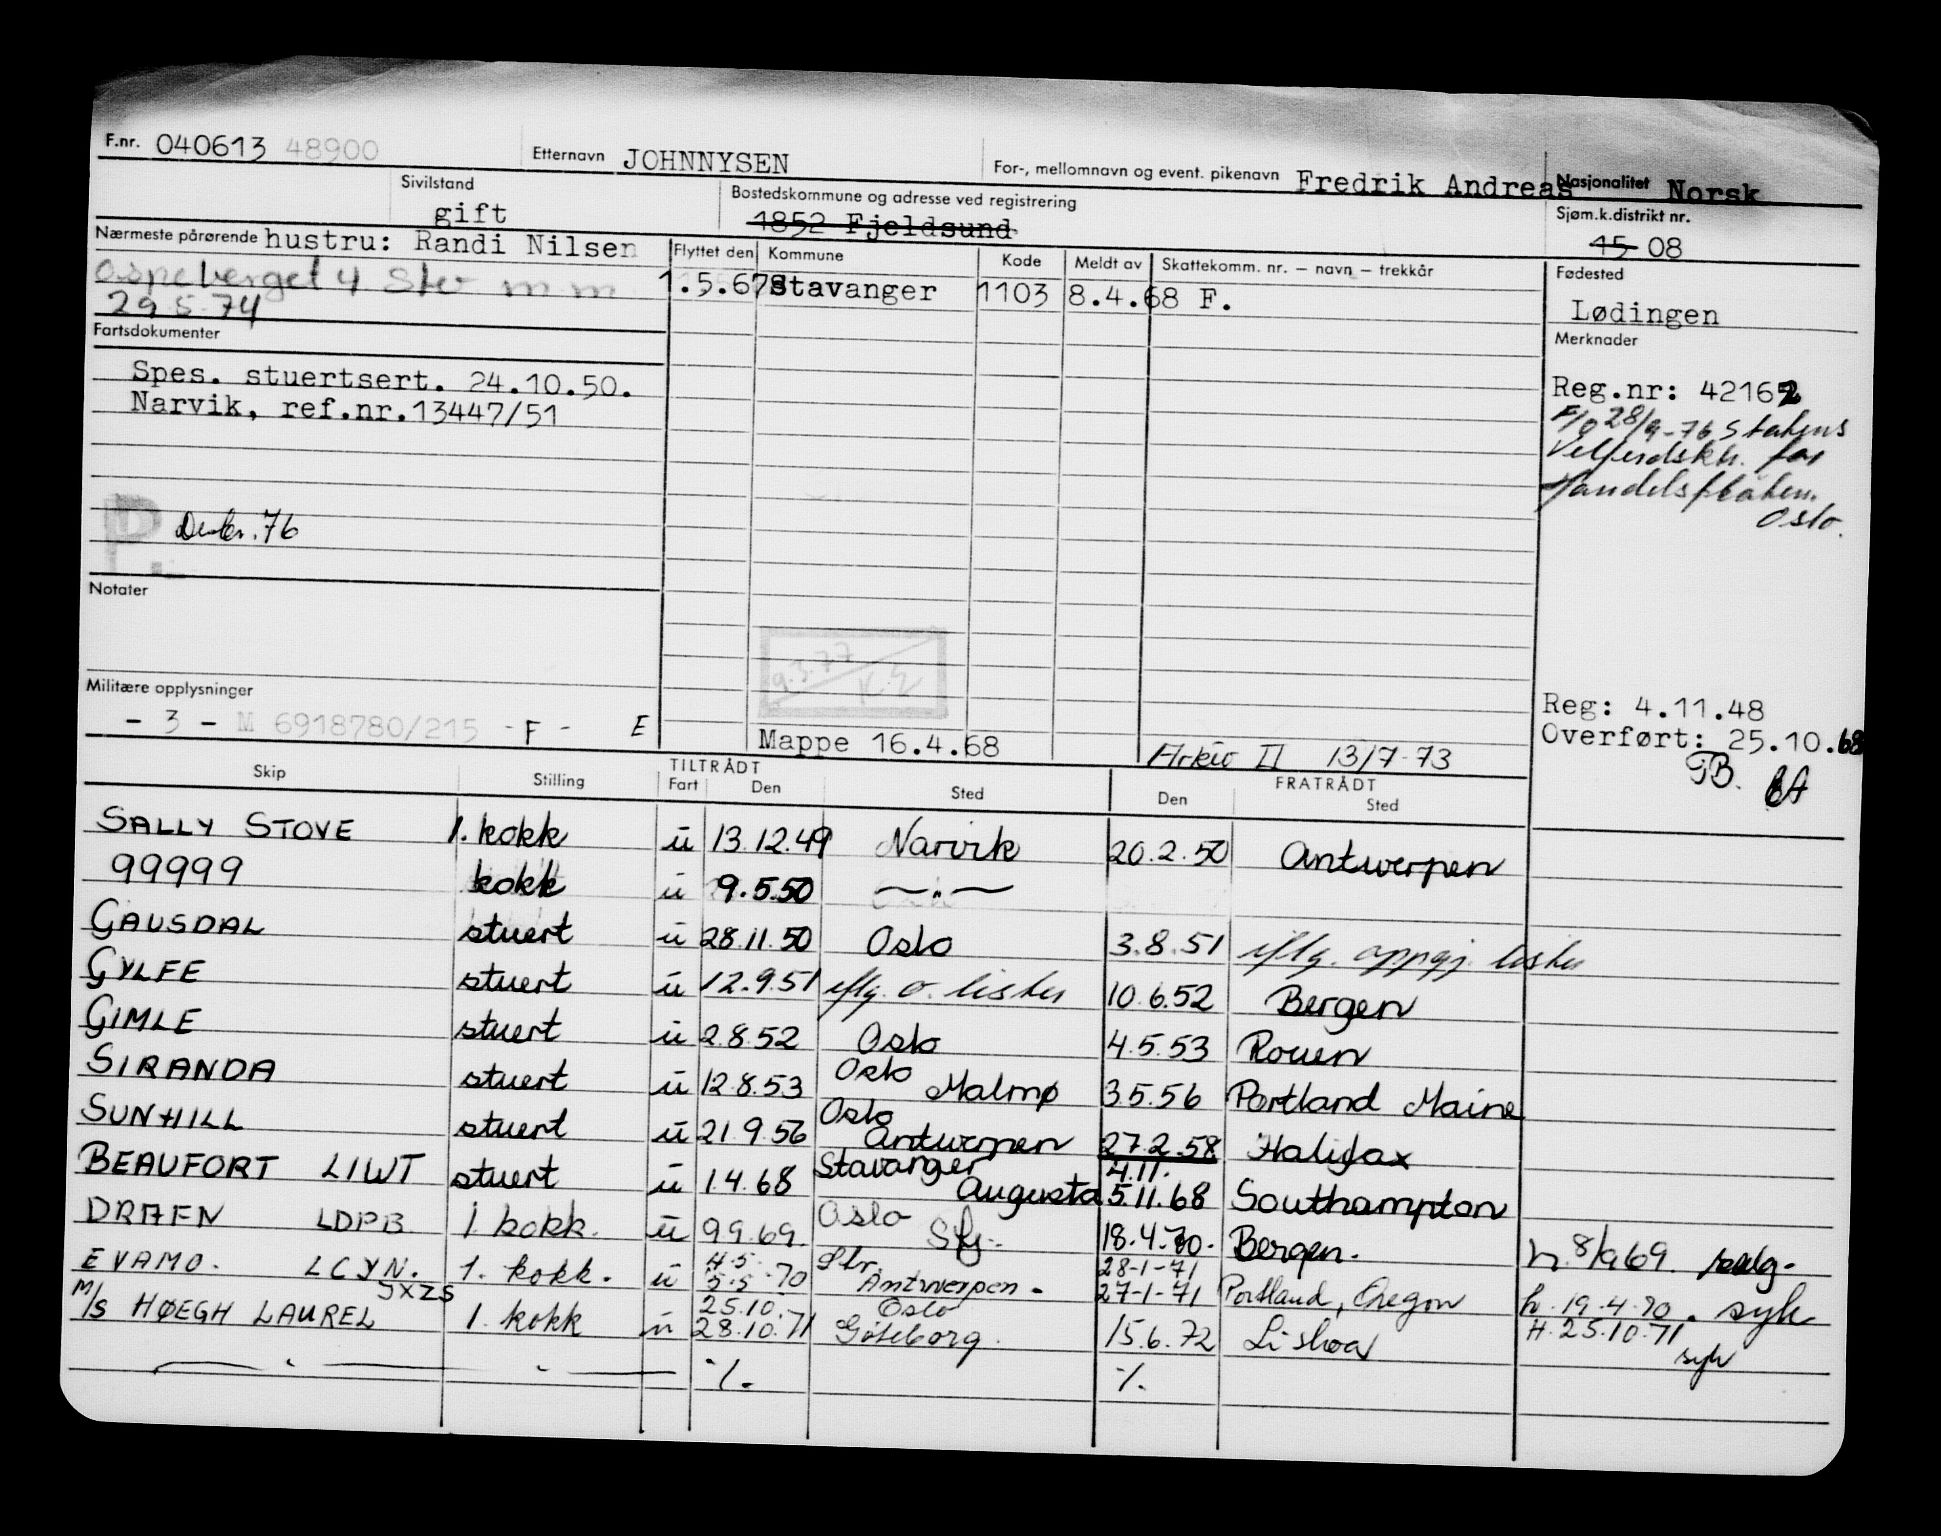 F.nr. 040613 48900 Etternavn JOHNNYSEN For-, mellomnavn og event. pikenavn Fredrik Andreas Nasjonalitet Norsk
Sivilstand gift Bostedskommune og adresse ved registrering 1852 Fjeldsund Sjøm.k.distrikt nr. 15 08
Nærmeste pårørende hustru: Randi Nilsen Flyttet den Kommune Kode Meldt av Skattekomm. nr. – navn – trekkår Fødested
Ospeberget 4
1.5.67 Stavanger 1103 8.4.68 F. Lødingen
29.5.74
Fartsdokumenter Merknader
Spes. stuertsert. 24.10.50. Reg.nr: 42162
Narvik, ref.nr.13447/51
28/9-76 Statens
Velferdskt. for
Handelsflåten.
Oslo.
P. Desbr. 76
Notater
9.3.77
Militære opplysninger Reg: 4.11.48
- 3 - M 6918780/215 - F - E Mappe 16.4.68 Arkiv II 13/7-73 Overført: 25.10.68
TILTRÅDT FRATRÅDT
Skip Stilling Fart Den Sted Den Sted
SALLY STOVE 1. kokk ü 13.12.49 Narvik 20.2.50 Antwerpen
99999 kokk ü 9.5.50 — " —
GAUSDAL stuert ü 28.11.50 Oslo 3.8.51 iflg. oppgj. lister
GYLFE stuert ü 12.9.51 iflg. o. lister 10.6.52 Bergen
GIMLE stuert ü 2.8.52 Oslo 4.5.53 Rouen
SIRANDA stuert ü 12.8.53 Oslo Malmø 3.5.56 Portland Maine
SUNHILL stuert ü 21.9.56 Oslo Antwerpen 27.2.58 Halifax
BEAUFORT LIWT stuert ü 1.4.68 Stavanger Augusta 4.11. 5.11.68 Southampton
DRAFN LDPB 1. kokk. ü 9.9.69. Oslo 18.4.70. Bergen. h. 8/9 69.
EVAMO. LCYN. 1. kokk. ü 4.5. 5.5.70 Antwerpen. 28-1-71 27-1-71 Portland, Oregon h. 19.4.70. syk
M/S HØEGH LAUREL JXZS 1. kokk ü 25.10. 28.10.71 Oslo Göteborg. 15.6.72 Lisboa H. 25.10.71 syk
— " — " — ·/. ·/.